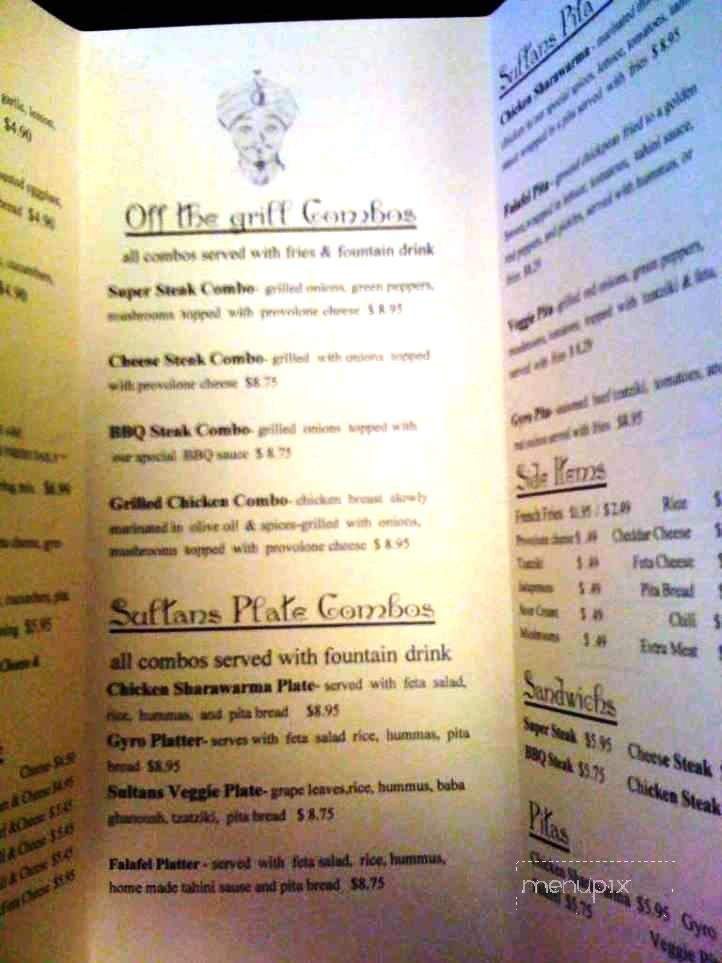 garlic, lemon,
$4.90
eggplant,
bread $4.90
cucumbers,
$4.90
$5.95
Cheese $4.50
& Cheese $4.95
& Cheese $5.45
& Cheese $5.45
& Cheese $5.45
Cheese $5.95
Off the grill Combos
all combos served with fries & fountain drink
Super Steak Combo- grilled onions, green peppers,
mushrooms topped with provolone cheese $ 8.95
Cheese Steak Combo- grilled with onions topped
with provolone cheese $8.75
BBQ Steak Combo- grilled onions topped with
our special BBQ sauce $ 8.75
Grilled Chicken Combo- chicken breast slowly
marinated in olive oil & spices-grilled with onions,
mushrooms topped with provolone cheese $ 8.95
Sultans Plate Combos
all combos served with fountain drink
Chicken Sharawarma Plate- served with feta salad,
rice, hummas, and pita bread $8.95
Gyro Platter- serves with feta salad rice, hummas, pita
bread $8.95
Sultans Veggie Plate- grape leaves,rice, hummus, baba
ghanoush, tzatziki, pita bread $ 8.75
Falafel Platter - served with feta salad, rice, hummus,
home made tahini sause and pita bread $8.75
Sultans Pita
Chicken Sharawarma - marinated
chicken in our special spices, lettuce, tomatoes, tahini
wrapped in a pita served with fries $ 8.95
Falafel Pita- ground chickpeas fried to a golden
brown, wrapped in lettuce, tomatoes, tahini sauce,
served with hummus, or
fries $8.29
Veggie Pita- grilled red onions, green peppers,
mushrooms, tomatoes, topped with tzatziki & feta,
served with fries $ 8.29
Gyro Pita- seasoned beef tzatziki, tomatoes, and
red onions served with fries $8.95
Side Items
French Fries $1.95 / $2.49 Rice $
Provolone cheese $ .49 Cheddar Cheese $
Tzatziki $ .49 Feta Cheese $
Jalapenos $ .49 Pita Bread $
Sour Cream $ .49 Chili $
Mushrooms $ .49 Extra Meat $
Sandwichs
Super Steak $5.95 Cheese Steak $
BBQ Steak $5.75 Chicken Steak
Pitas
Chicken Sharawarma $5.95 Gyro
$5.75 Veggie
menupix